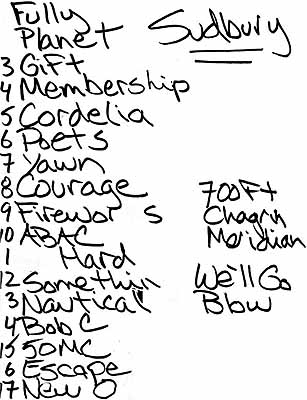 Fully
Planet
3 Gift
4 Membership
5 Cordelia
6 Poets
7 Yawn
8 Courage
9 Firewor s
10 ABAC
1 Hard
12 Somethin
3 Nautical
4 Bob C
15 50MC
6 Escape
17 New O
Sudbury
700Ft
Chagrin
Meridian
We'll Go
Bbw